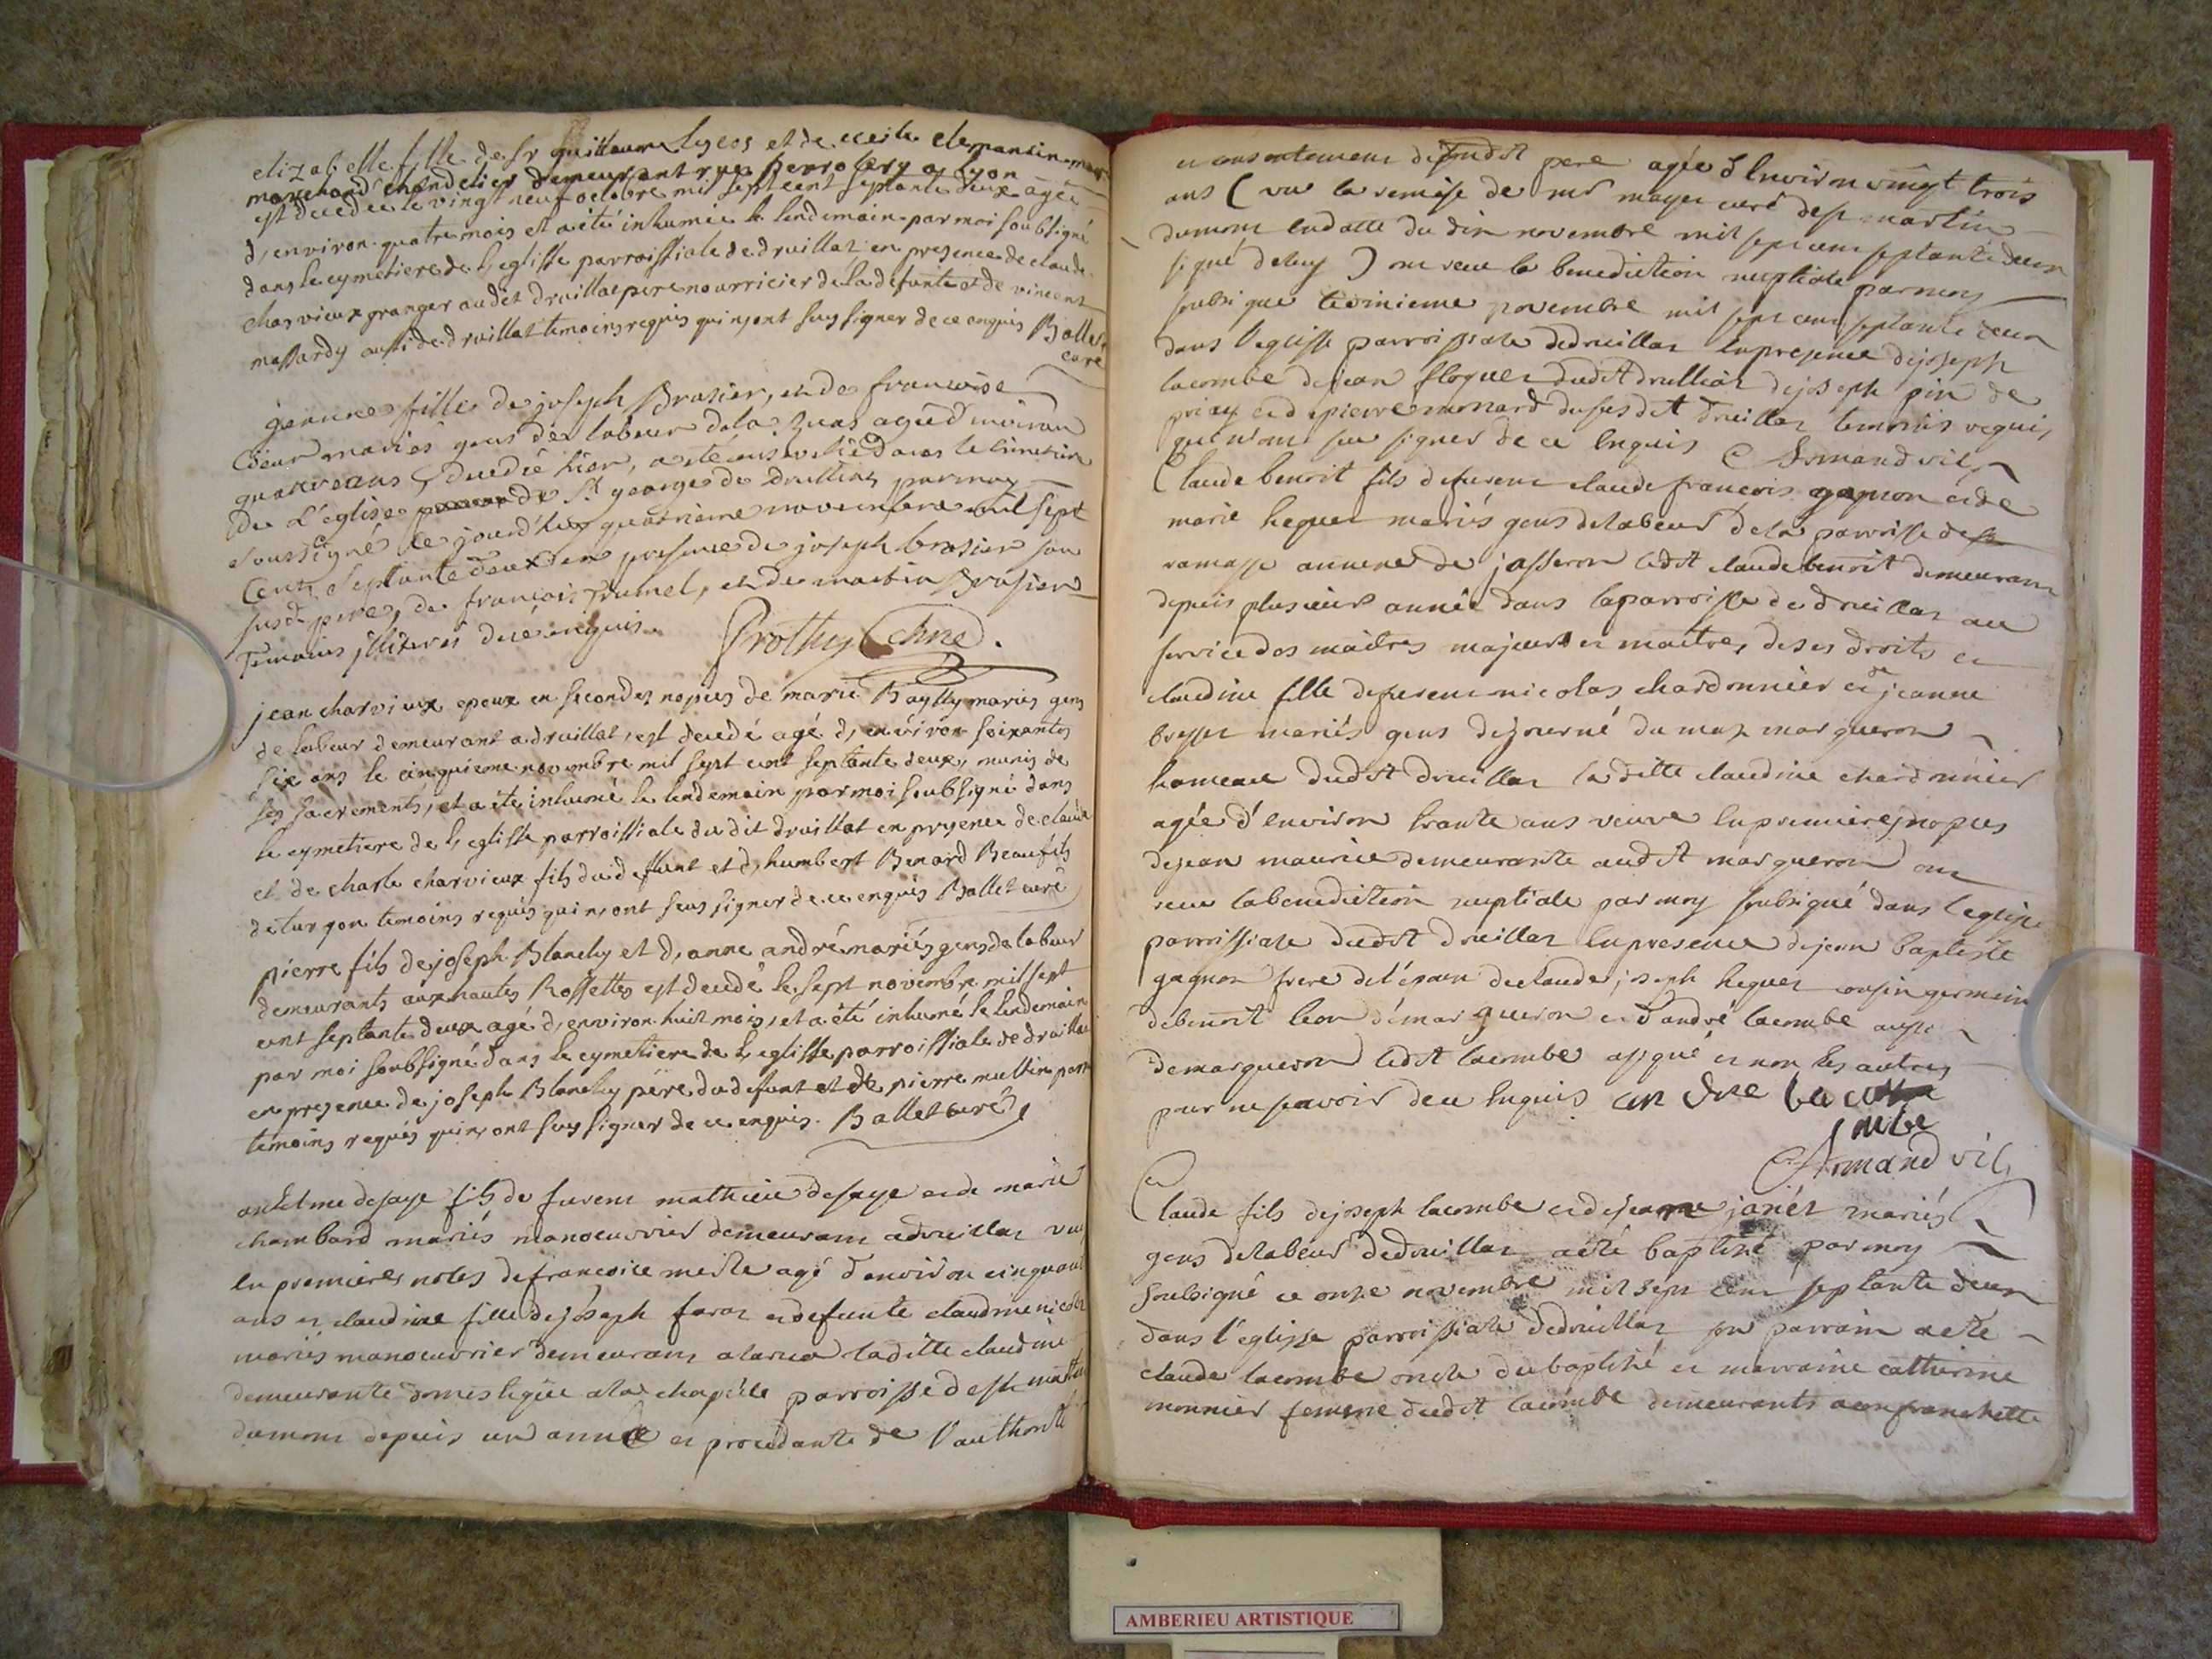 elizabelle fille de sr guillaume legeos et de cecile clemansin
marchand chandelier demeurant rue perrolery a Lyon
est decedee le vingt neuf octobre mil sept cent septante deux agee
d, environ quatre mois et a été inhumee le lendemain par moi soubsigné
dans le cymetiere de l, eglisse parroissiale de druillat en presence de claude
charvieux granger audit druillat pere nourricier de la defunte et de vincent
massardy aussi de druillat temoins requis qui n, ont sus signer de ce enquis Ballet
curé
jeanne fille de joseph Brasier, et de francoise
Cœur mariés gens de labeur de la ruas agée d'environ
quatre ans, decedée hier, a été ensevelie dans le cimetiere
de L'eglise de St georges de Druillat, par moy
soussigné le jourd'huy quatrieme novembre mil sept
Cent septante deux en presence de joseph brasier son
susd. pere, de francois Trumel, et de martin Brasier
Temoins illiterés de ce enquis. Prothey
jean charvieux epoux en secondes nopces de marie Baylly mariés gens
de labeur demeurant a druillat, est decedé agé d, environ soixante
six ans le cinquieme novembre mil sept cent septante deux, munis de
ses sacrements, et a été inhumé le lendemain par moi soubsigné dans
le cymetiere de l, eglisse parroissiale du dit druillat en presence de claude
et de charle charvieux fils du deffunt et d, humbert Benard Beaufils
de turgon temoins requis qui n, ont sus signer de ce enquis Ballet curé
pierre fils de joseph Blanchy et d, anne andré mariés gens de labeur
demeurants aux hautes Rossettes est decedé le sept novembre mil sept
cent septante deux agé d, environ huit mois, et a été inhumé le lendemain
par moi soubsigné dans le cymetiere de l, eglisse parroissiale de druillat
en presence de joseph Blanchy pére du defunt et de pierre mullin
temoins requis qui n, ont sus signer de ce enquis. Ballet curé
antelme desaye fils de furent mathieu desaye et de marie
chambard mariés manoeuvrier demeurant a druillat veuf
en premieres notes de francoise merle agé d'environ cinquante
ans et claudine fille de joseph farat et defeunte claudine nicolet
mariés manoeuvrier demeurant a la rua laditte claudine
demeurante domestique a la chapelle parroisse de st martin
dumont depuis un année et procedante de l'authorité
et consentement de sondit pere agée d'environ vingt trois
ans (vu la remise de mr mayer curé de st martin
dumont en datte du dix novembre mil sept cent septante deux
signé deluy) ont receu la benediction nuptiale par moy
soubsigné novembre mil sept cent septante deux
dans l'eglisse parroissiale de druillat en presence de joseph
lacombe de jean floquet dudit druillat de joseph pin de
priay et de pierre monard du susdit druillat temoins requis
qui n'ont seu signer de ce enquis Armand vic.
Claude benoit fils defurent claude francois gagnon et de
marie heguet mariés gens de labeur de la parroisse de
ramasse annexe de jasseron ledit claude benoit demeurant
depuis plusieurs année dans la parroisse de druillat au
service des maîtres majeurs et maitres de ses droits et
claudine fille defurent nicolas chardonnier et de jeanne
bresset mariés gens de journé du mas margueron
hameau dudit druillat ladite claudine chardonnier
agée d'environ trante ans veuve en premieres nopces
de jean maurice demeurante audit margueron ont
receu la benediction nuptiale par moy soubsigné dans l'eglise
parroissiale dudit druillat en presence de jean baptiste
gagnon frere de l'epoux de claude joseph heguet cousin germain
de benoit leon de margueron et d'andré lacombe aussi
de margueron ledit lacombe a signé et non les autres
pour ne scavoir de ce enquis an dre la com
mbe
Armand vic.
Claude fils de joseph lacombe et de jeanne janét mariés
gens de labeur de druillat a eté baptisé par moy
soubsigné ce onze novembre mil sept cent septante deux
dans l'eglisse parroissiale de druillat son parrain a eté
claude lacombe oncle du baptisé et marraine catherine
monnier femme dudit lacombe demeurants aux franchette
AMBERIEU ARTISTIQUE